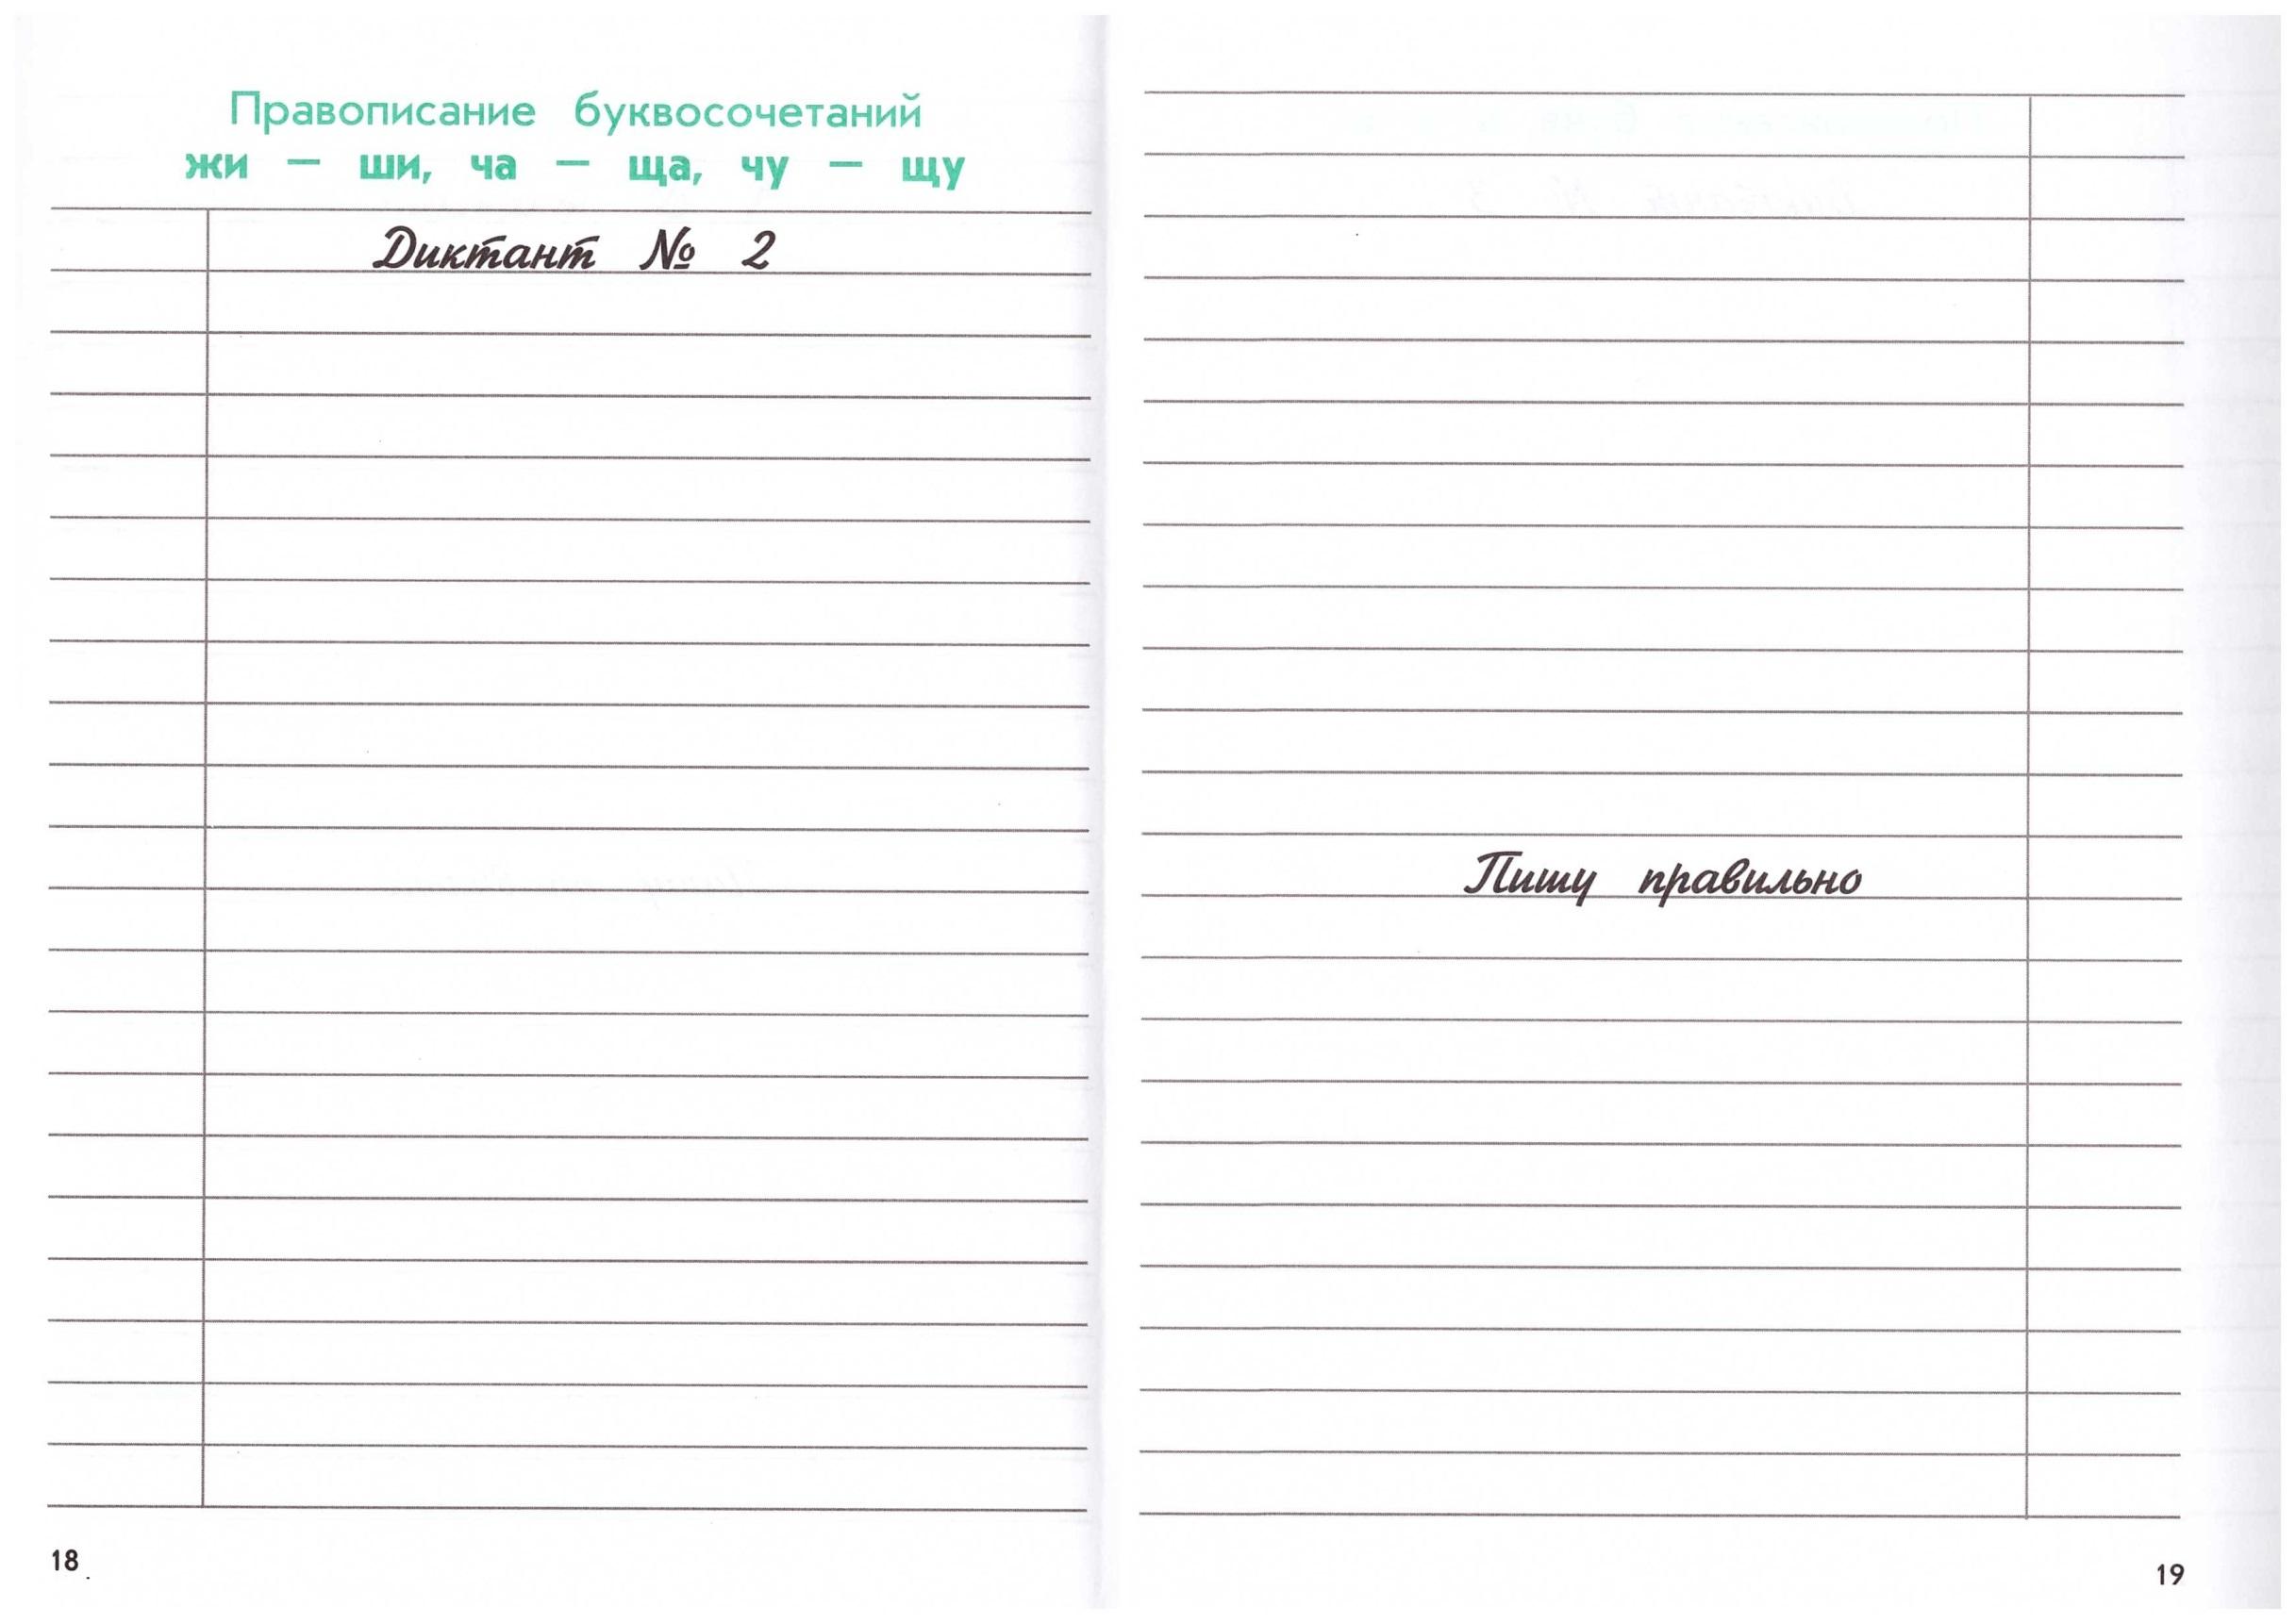 Правописание буквосочетаний
жи — ши, ча — ща, чу — щу
Диктант № 2
18
Пишу правильно
19